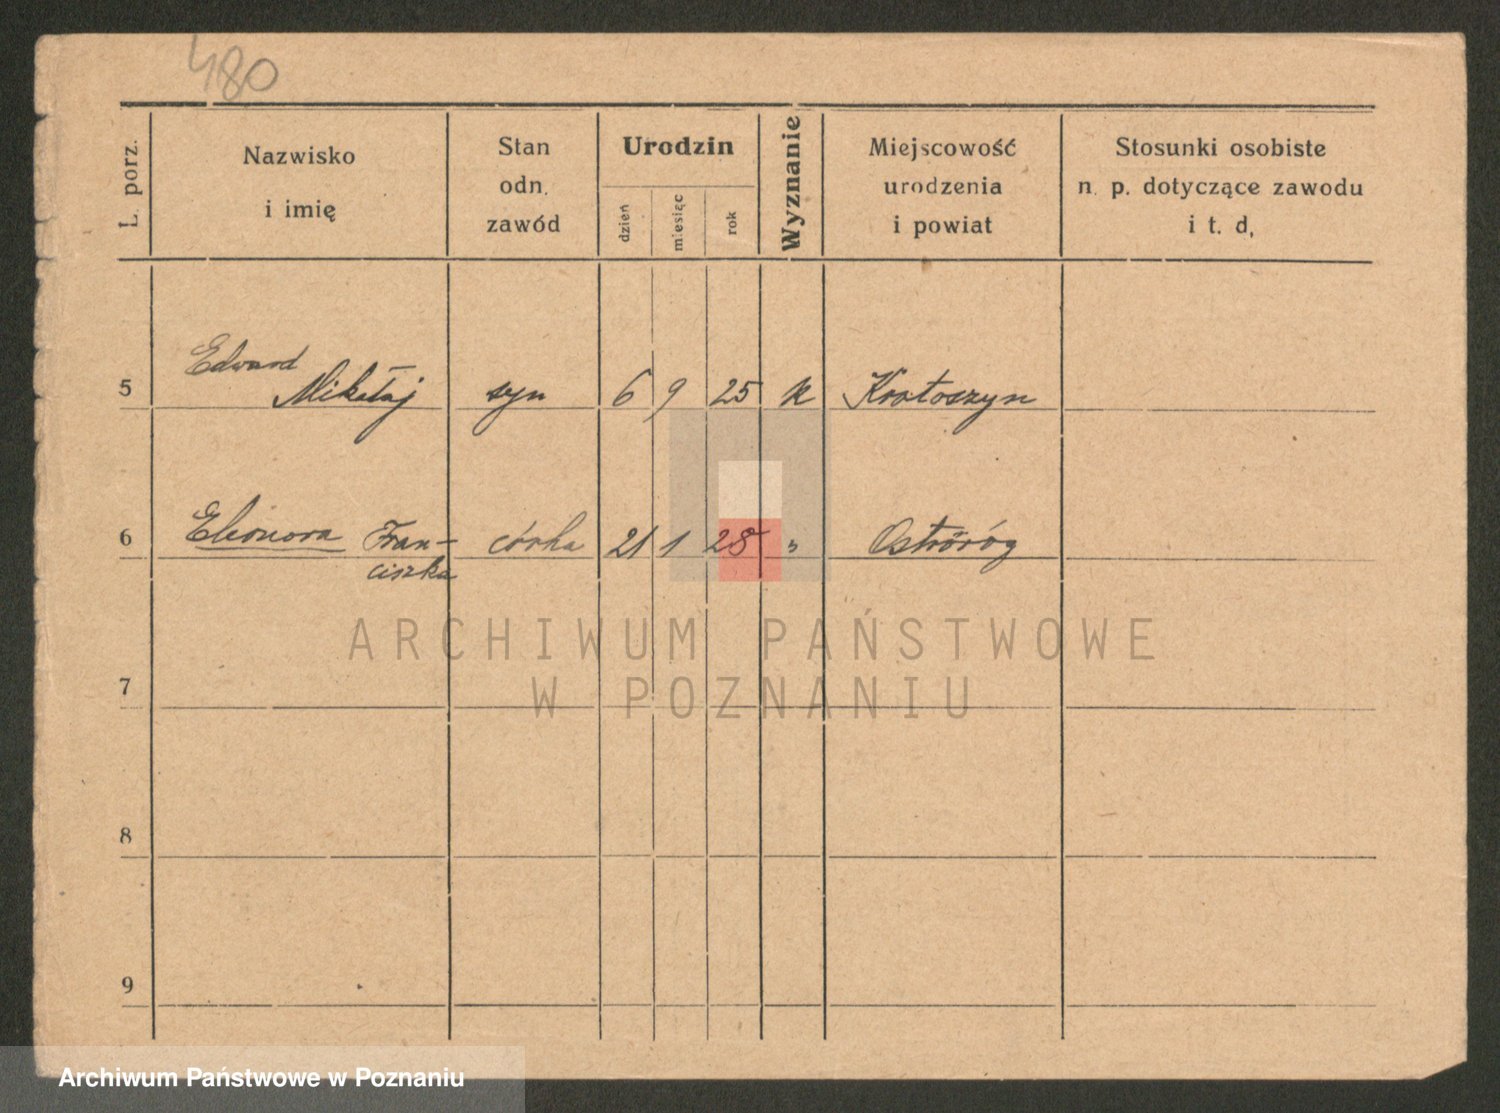 480
L. porz.
Nazwisko
i imię
Stan
odn.
zawód
Urodzin
dzień
miesiąc
rok
Wyznanie
Miejscowość
urodzenia
i powiat
Stosunki osobiste
n. p. dotyczące zawodu
i t. d,
Edward
5 Mikołaj syn 6 9 25 k Krotoszyn
6 Eleonora Fran- córka 21 1 28 " Ostroróg
ciszka
ARCHIWUM PAŃSTWOWE
7
W POZNANIU
8
9
Archiwum Państwowe w Poznaniu